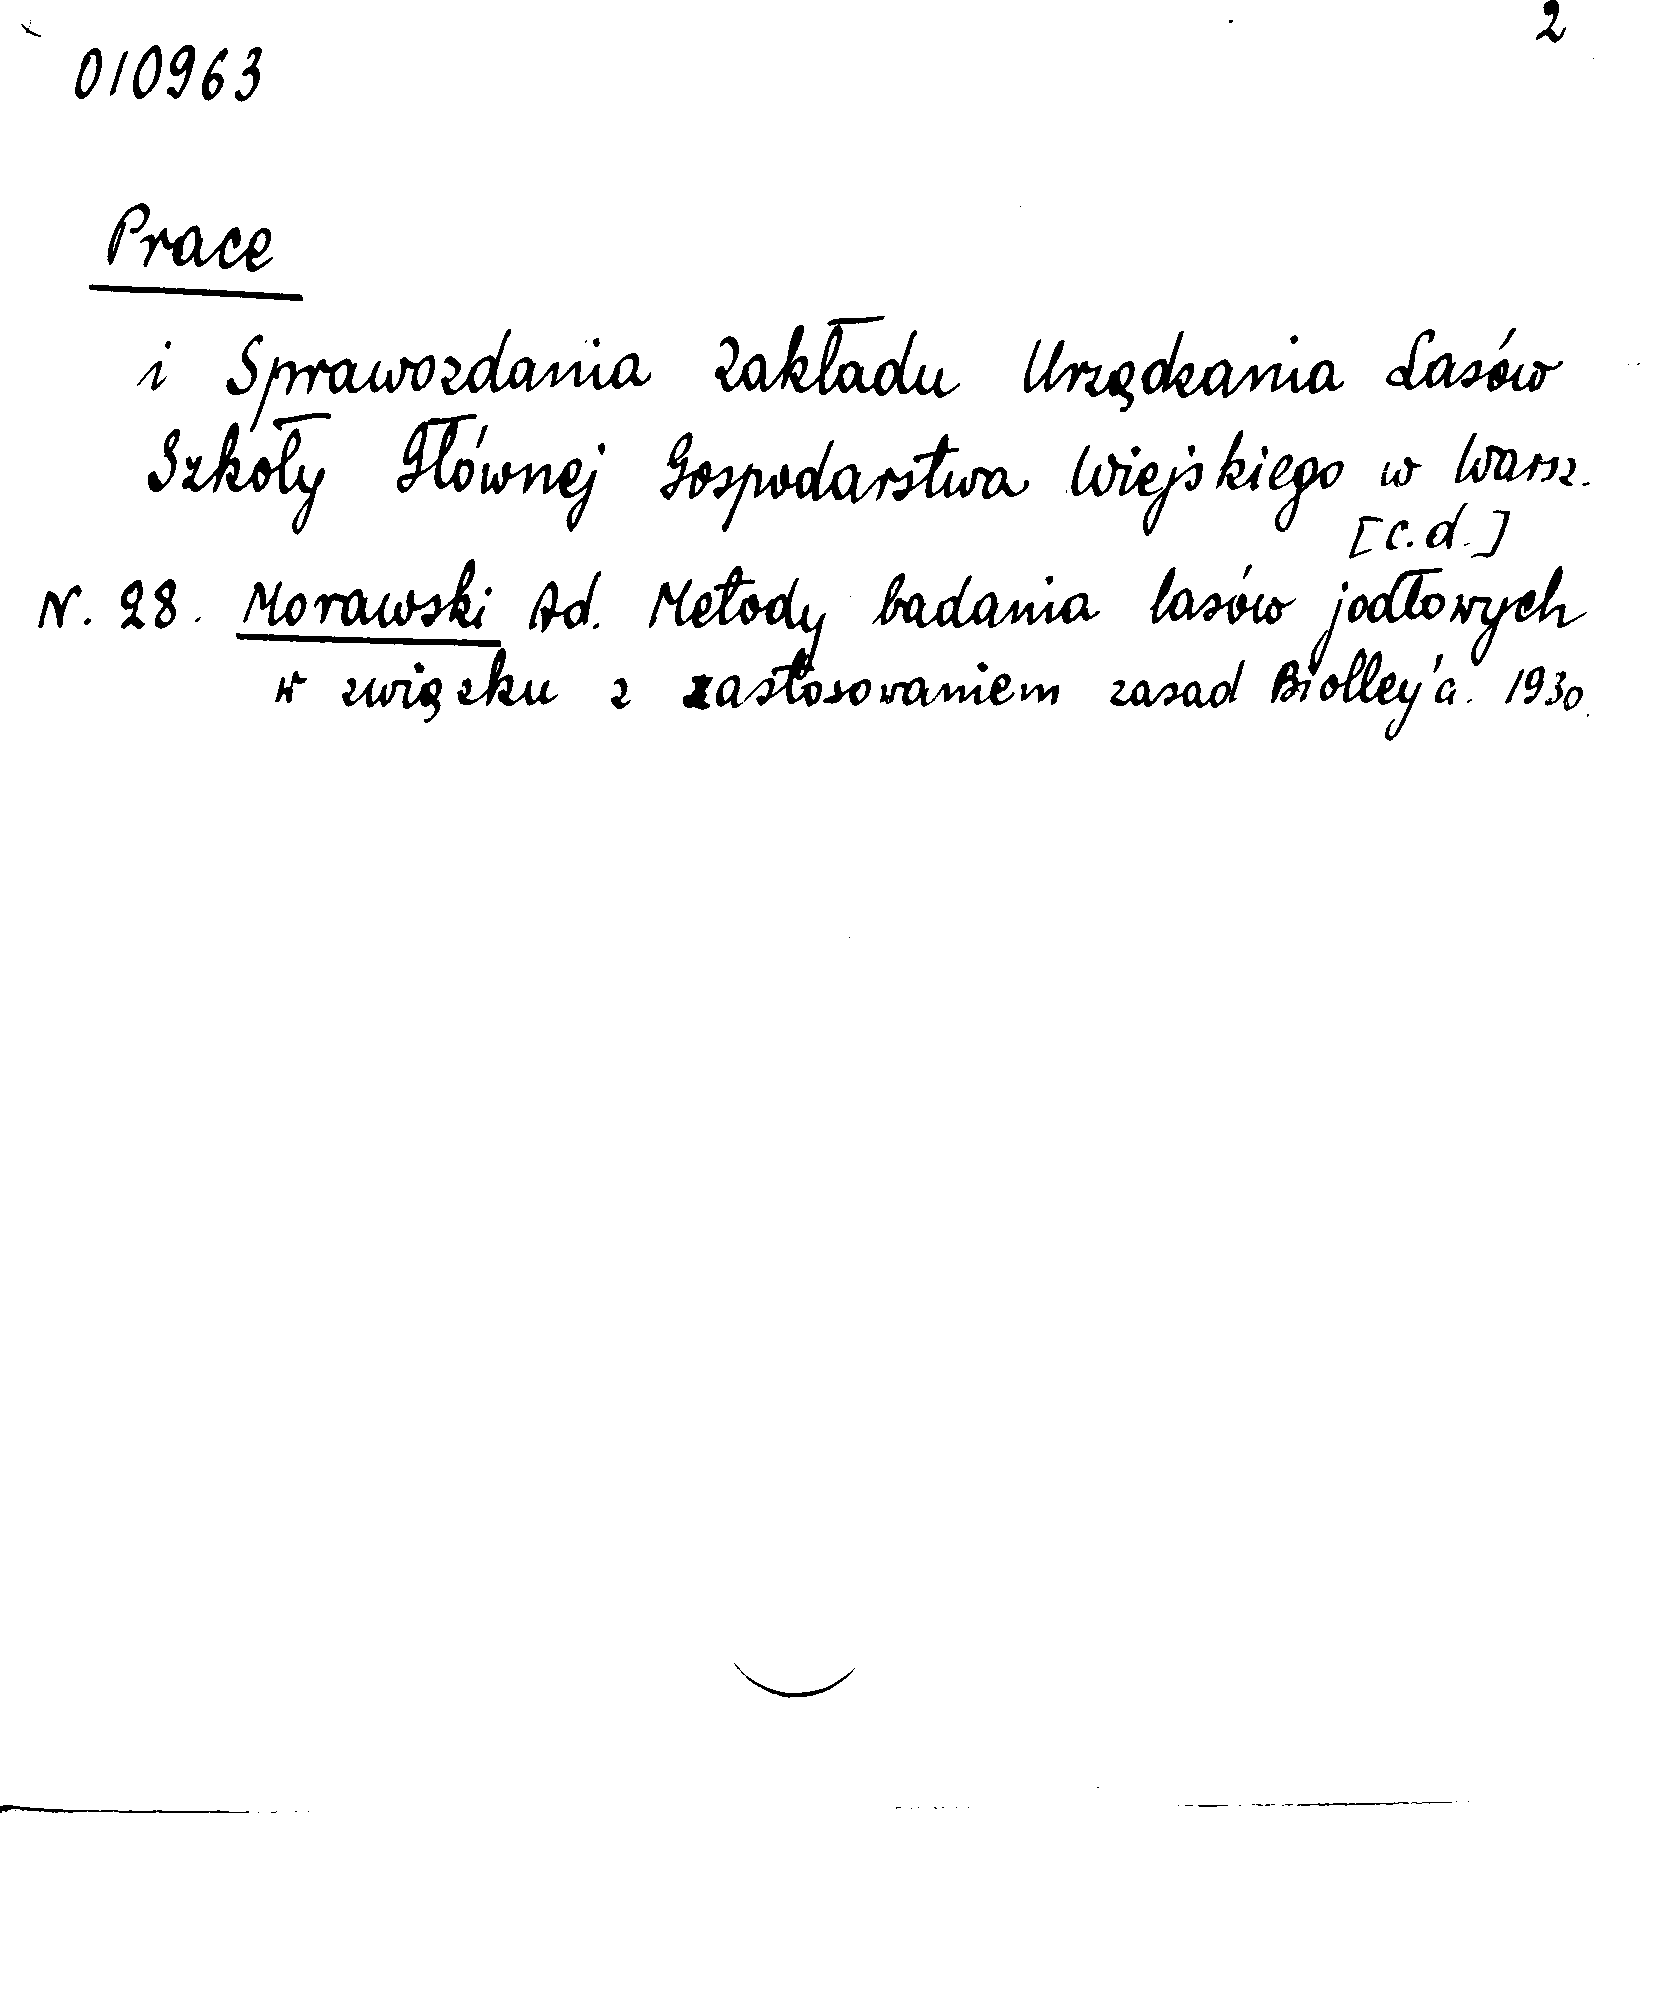 2
010963
Prace
i Sprawozdania Zakładu Urządzania Lasów
Szkoły Głównej Gospodarstwa Wiejskiego w Warsz.
[c.d.]
N. 28. Morawski Ad. Metody badania lasów jodłowych
w związku z zastosowaniem zasad Biolley'a. 1930.